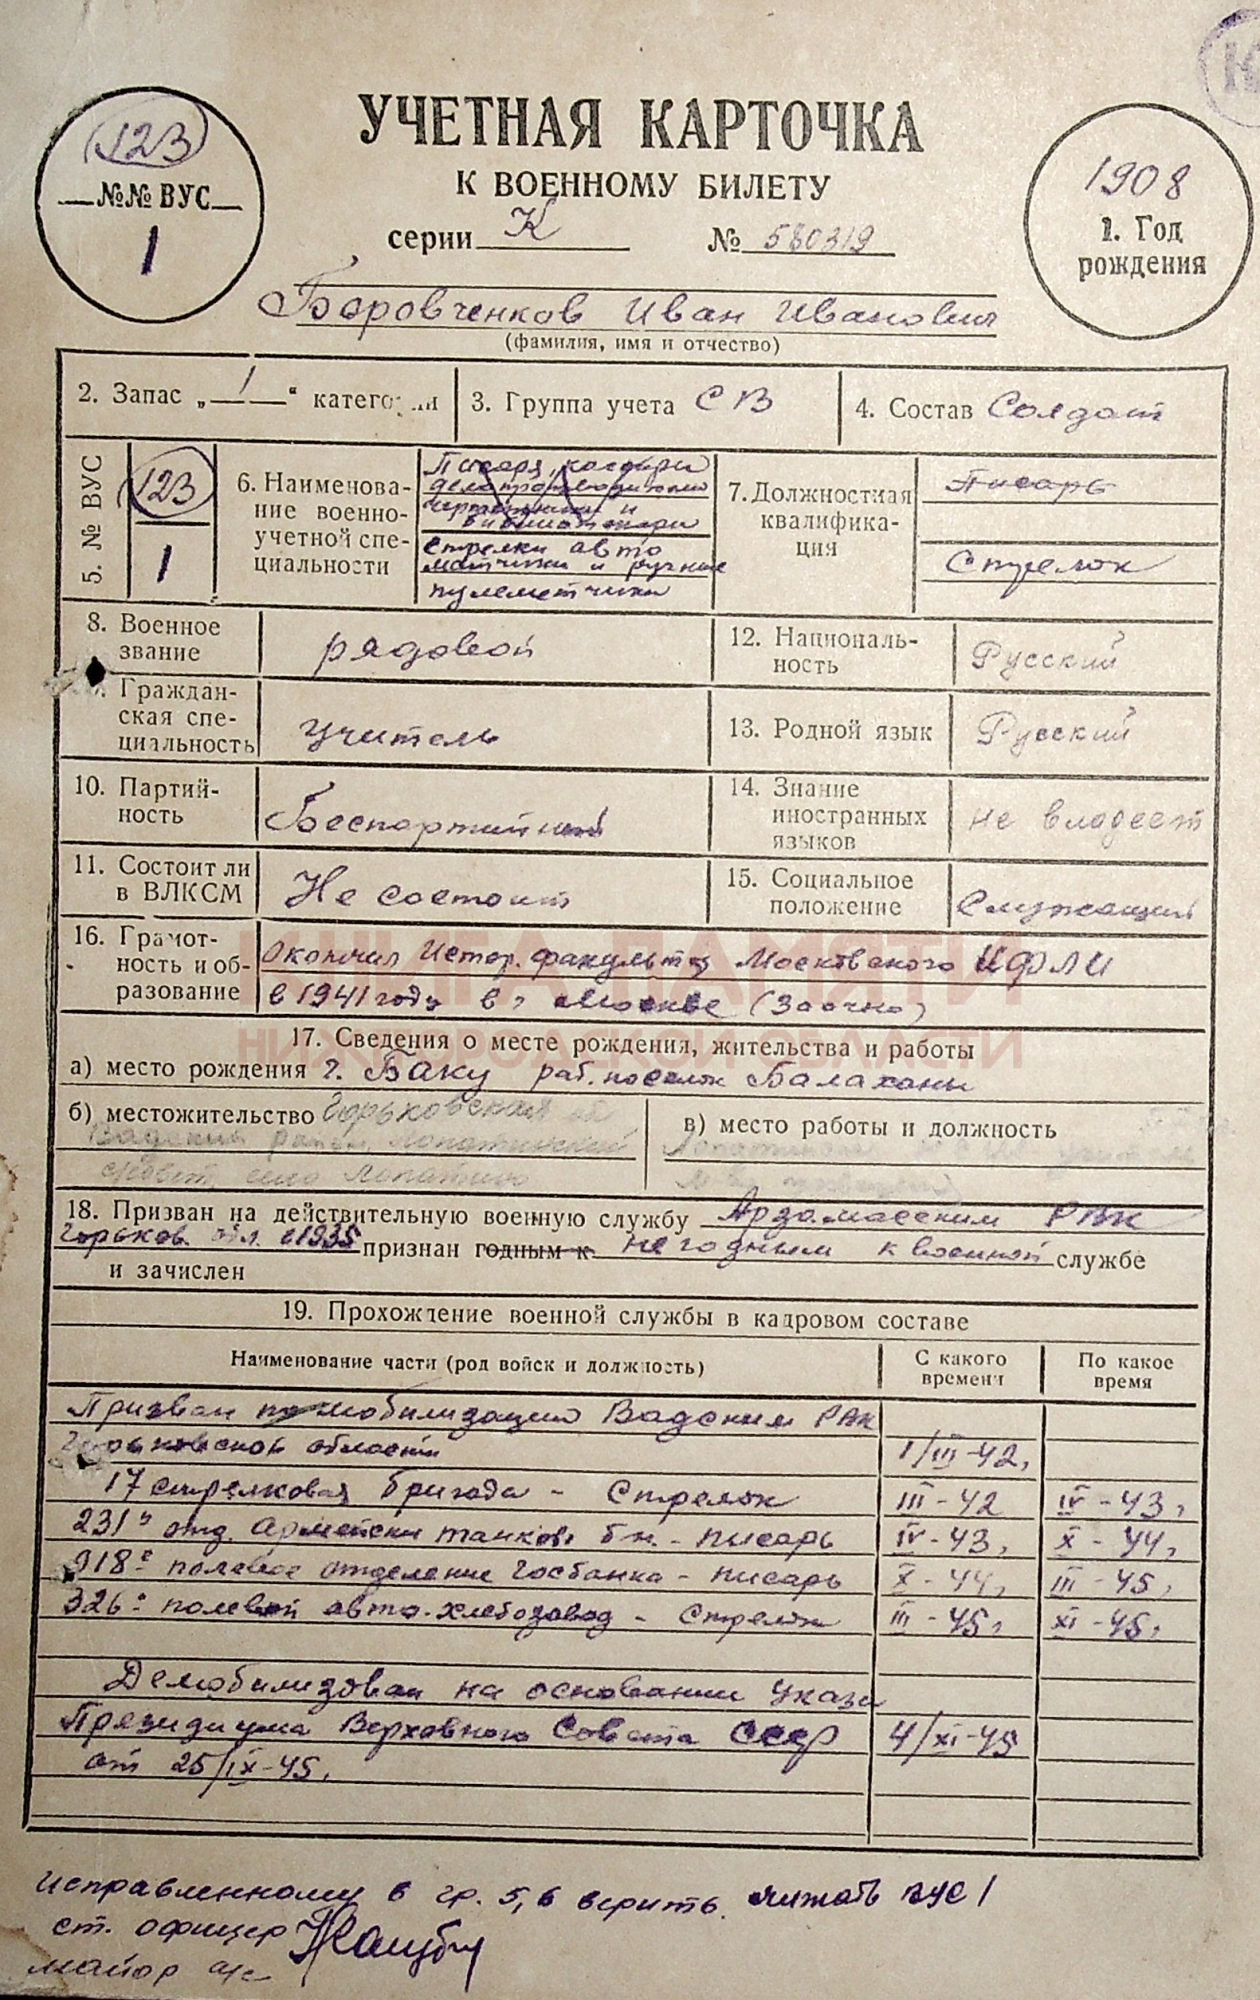 УЧЕТНАЯ КАРТОЧКА
К ВОЕННОМУ БИЛЕТУ
серии К № 580319
123
№№ ВУС
1
1908
1. Год
рождения
Боровченков Иван Иванович
(фамилия, имя и отчество)
2. Запас „1“ категории
3. Группа учета СВ
4. Состав Солдат
5. № ВУС
123
1
6. Наименова-
ние военно-
учетной спе-
циальности
Писаря, каптёры
делопроизводители
чертежники и
библиотекари
стрелки авто
матчики и ручные
пулеметчики
7. Должностная
квалифика-
ция
Писарь
Стрелок
8. Военное
звание
рядовой
Граждан-
ская спе-
циальность
учитель
10. Партий-
ность
Беспартийный
11. Состоит ли
в ВЛКСМ
Не состоит
12. Националь-
ность
Русский
13. Родной язык
Русский
14. Знание
иностранных
языков
не владеет
15. Социальное
положение
Служащий
16. Грамот-
ность и об-
разование
Окончил Истор. факультет Московского ИФЛИ
в 1941 году в г. Москве (Заочно)
КНИГА ПАМЯТИ
НИЖЕГОРОДСКОЙ ОБЛАСТИ
17. Сведения о месте рождения, жительства и работы
а) место рождения г. Баку раб. поселок Балаханы
б) местожительство Горьковская об
Вадский район, Лопатинский
совет, село Лопатино
в) место работы и должность
18. Призван на действительную военную службу Арзамасским РВК
Горьков. обл. в 1935 признан годным к негодным к военной службе
и зачислен
19. Прохождение военной службы в кадровом составе
Наименование части (род войск и должность)
С какого
времени
По какое
время
Призван по мобилизации Вадским РВК
Горьковской области 1/III-42,
17 стрелковая бригада - Стрелок III-42 IV-43,
231й отд. Армейски танков. бн. - писарь IV-43, X-44,
918е полевое отделение Госбанка - писарь X-44, III-45,
326й полевой авто-хлебозавод - Стрелок III-45, XI-45,
Демобилизован на основании Указа
Президиума Верховного Совета СССР 4/XI-45
от 25/IX-45.
Исправленному в гр. 5, 6 верить. читать ВУС 1
ст. офицер
майор а/с